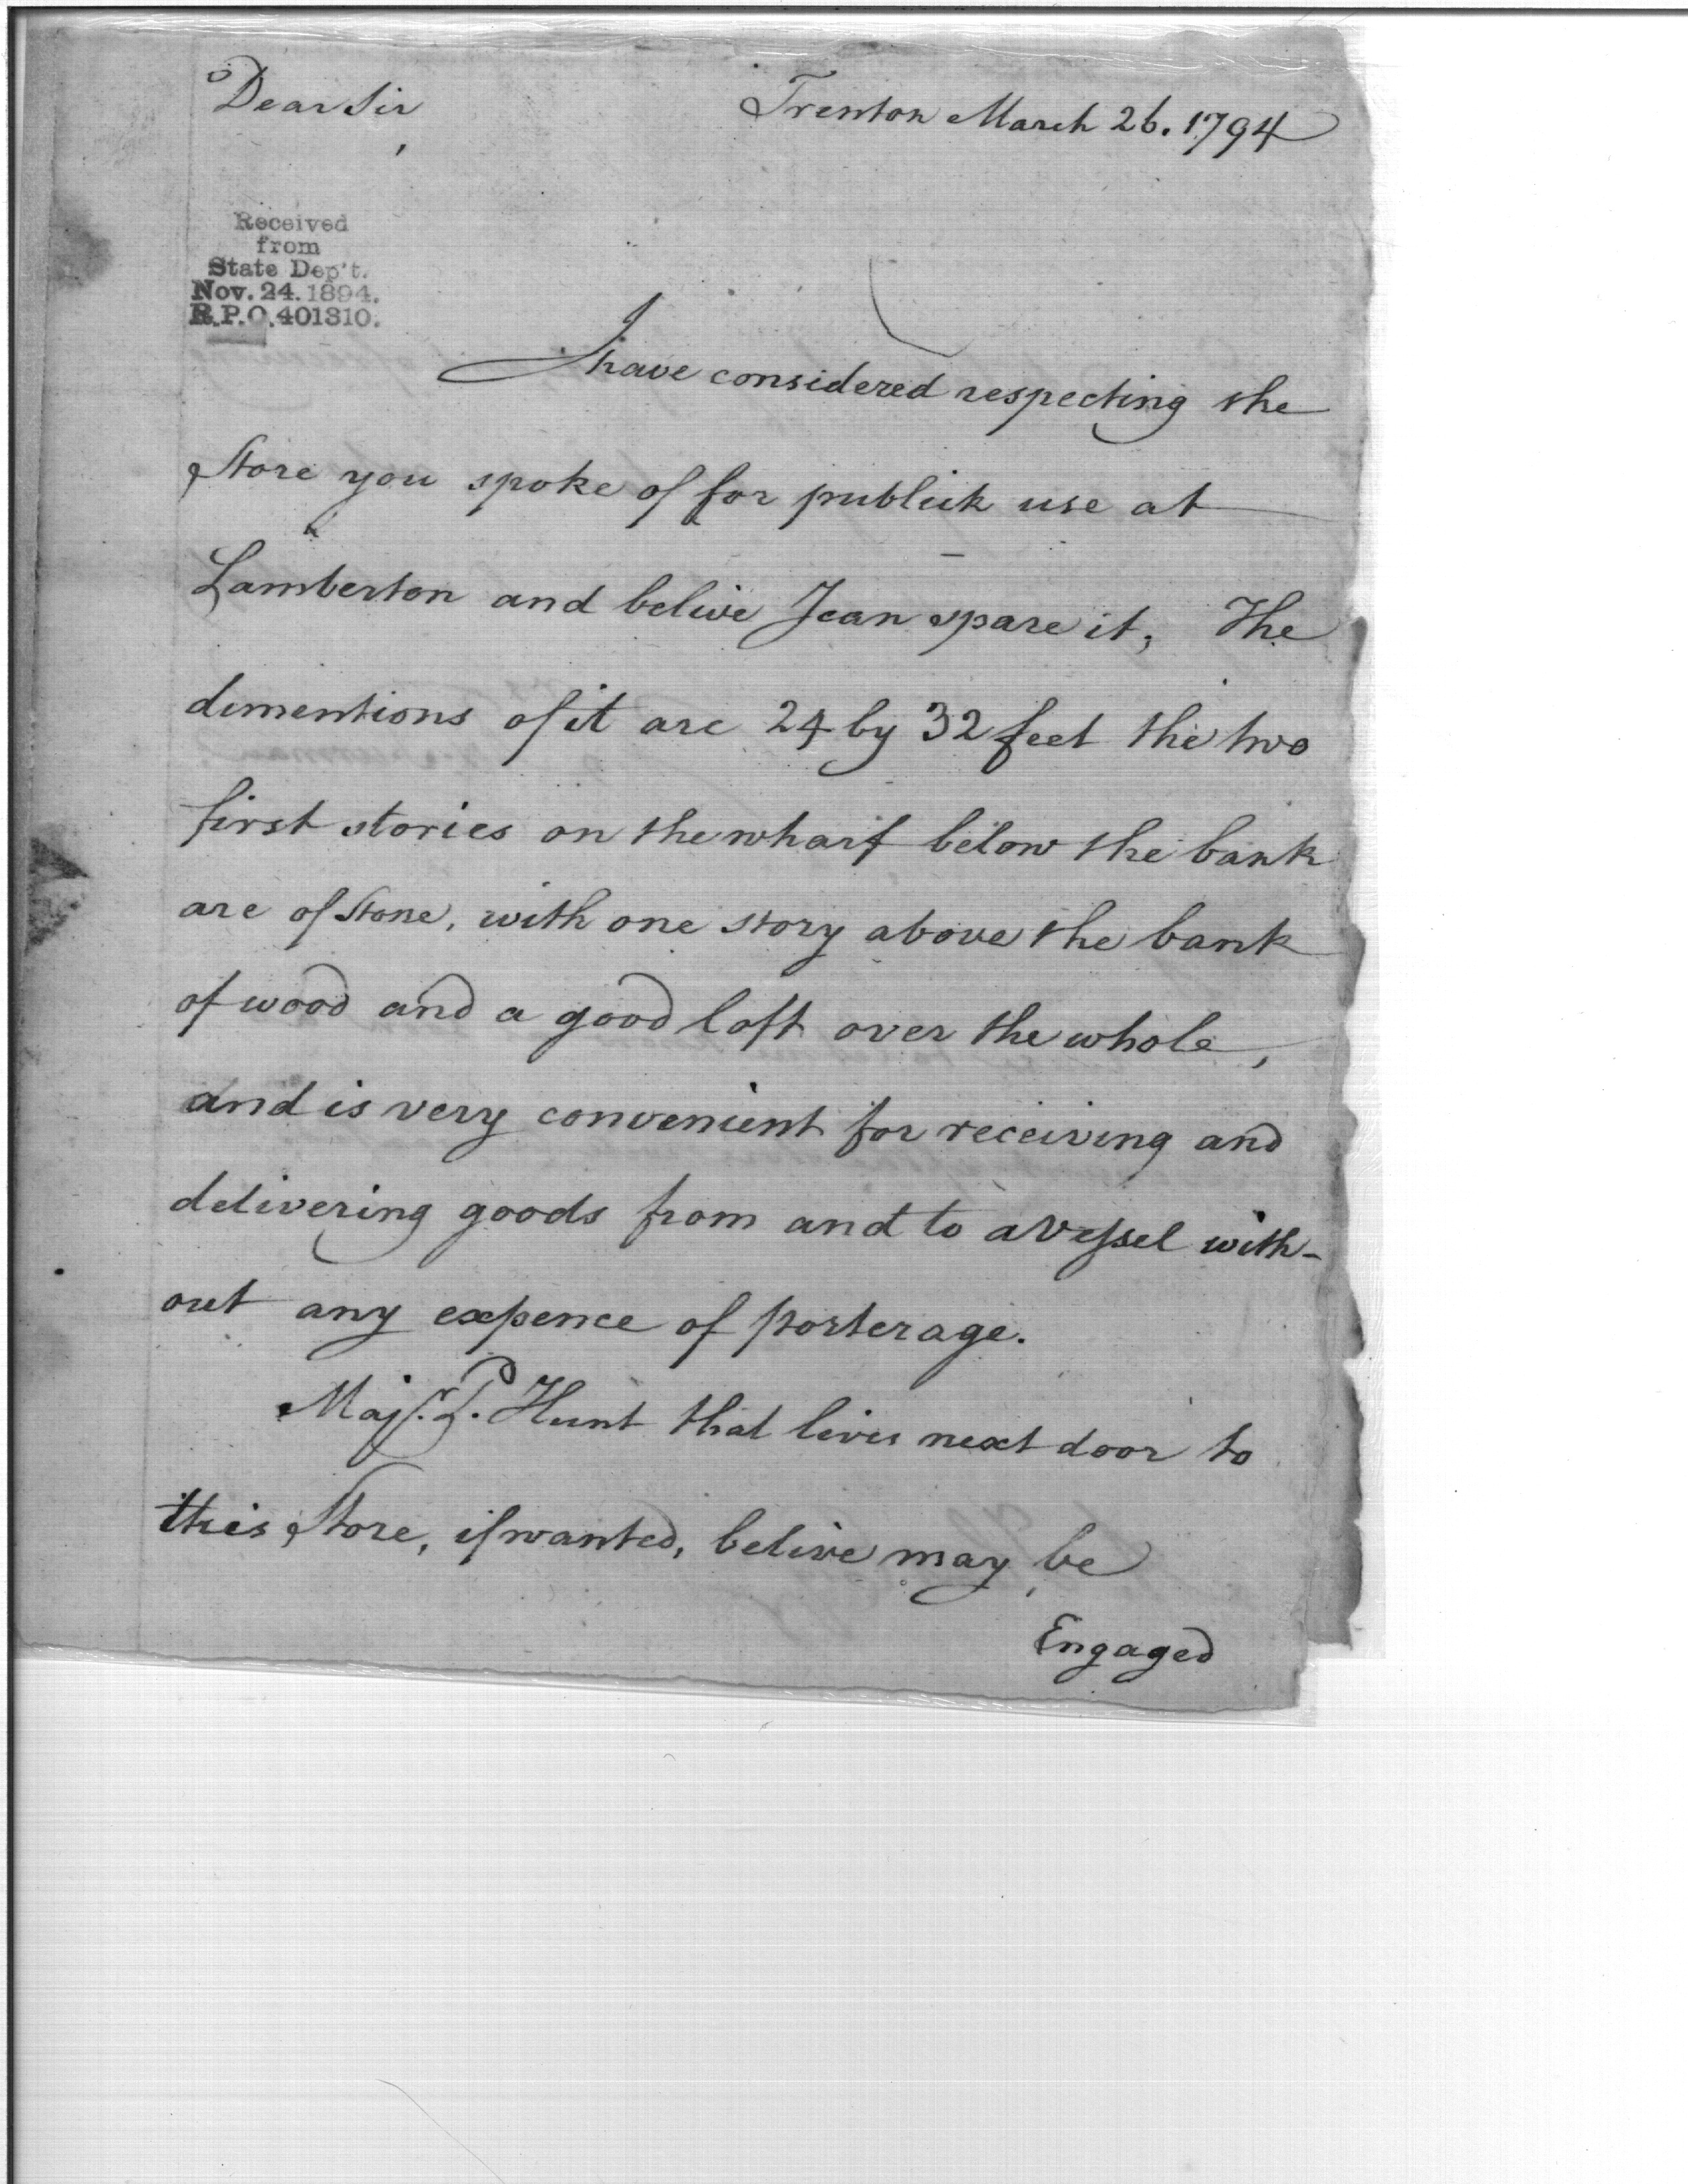 Dear Sir,
Trenton March 26. 1794
Received
from
State Dep't.
Nov. 24. 1894.
R.P.O. 401310.
I have considered respecting the
Store you spoke of for publick use at
Lamberton and belive I can spare it; The
dimentions of it are 24 by 32 feet the two
first stories on the wharf below the bank
are of Stone, with one story above the bank
of wood and a good loft over the whole,
and is very convenient for receiving and
delivering goods from and to a Vessel with-
out any expence of porterage.
Majr. P. Hunt that lives next door to
this Store, if wanted, belive may be
Engaged